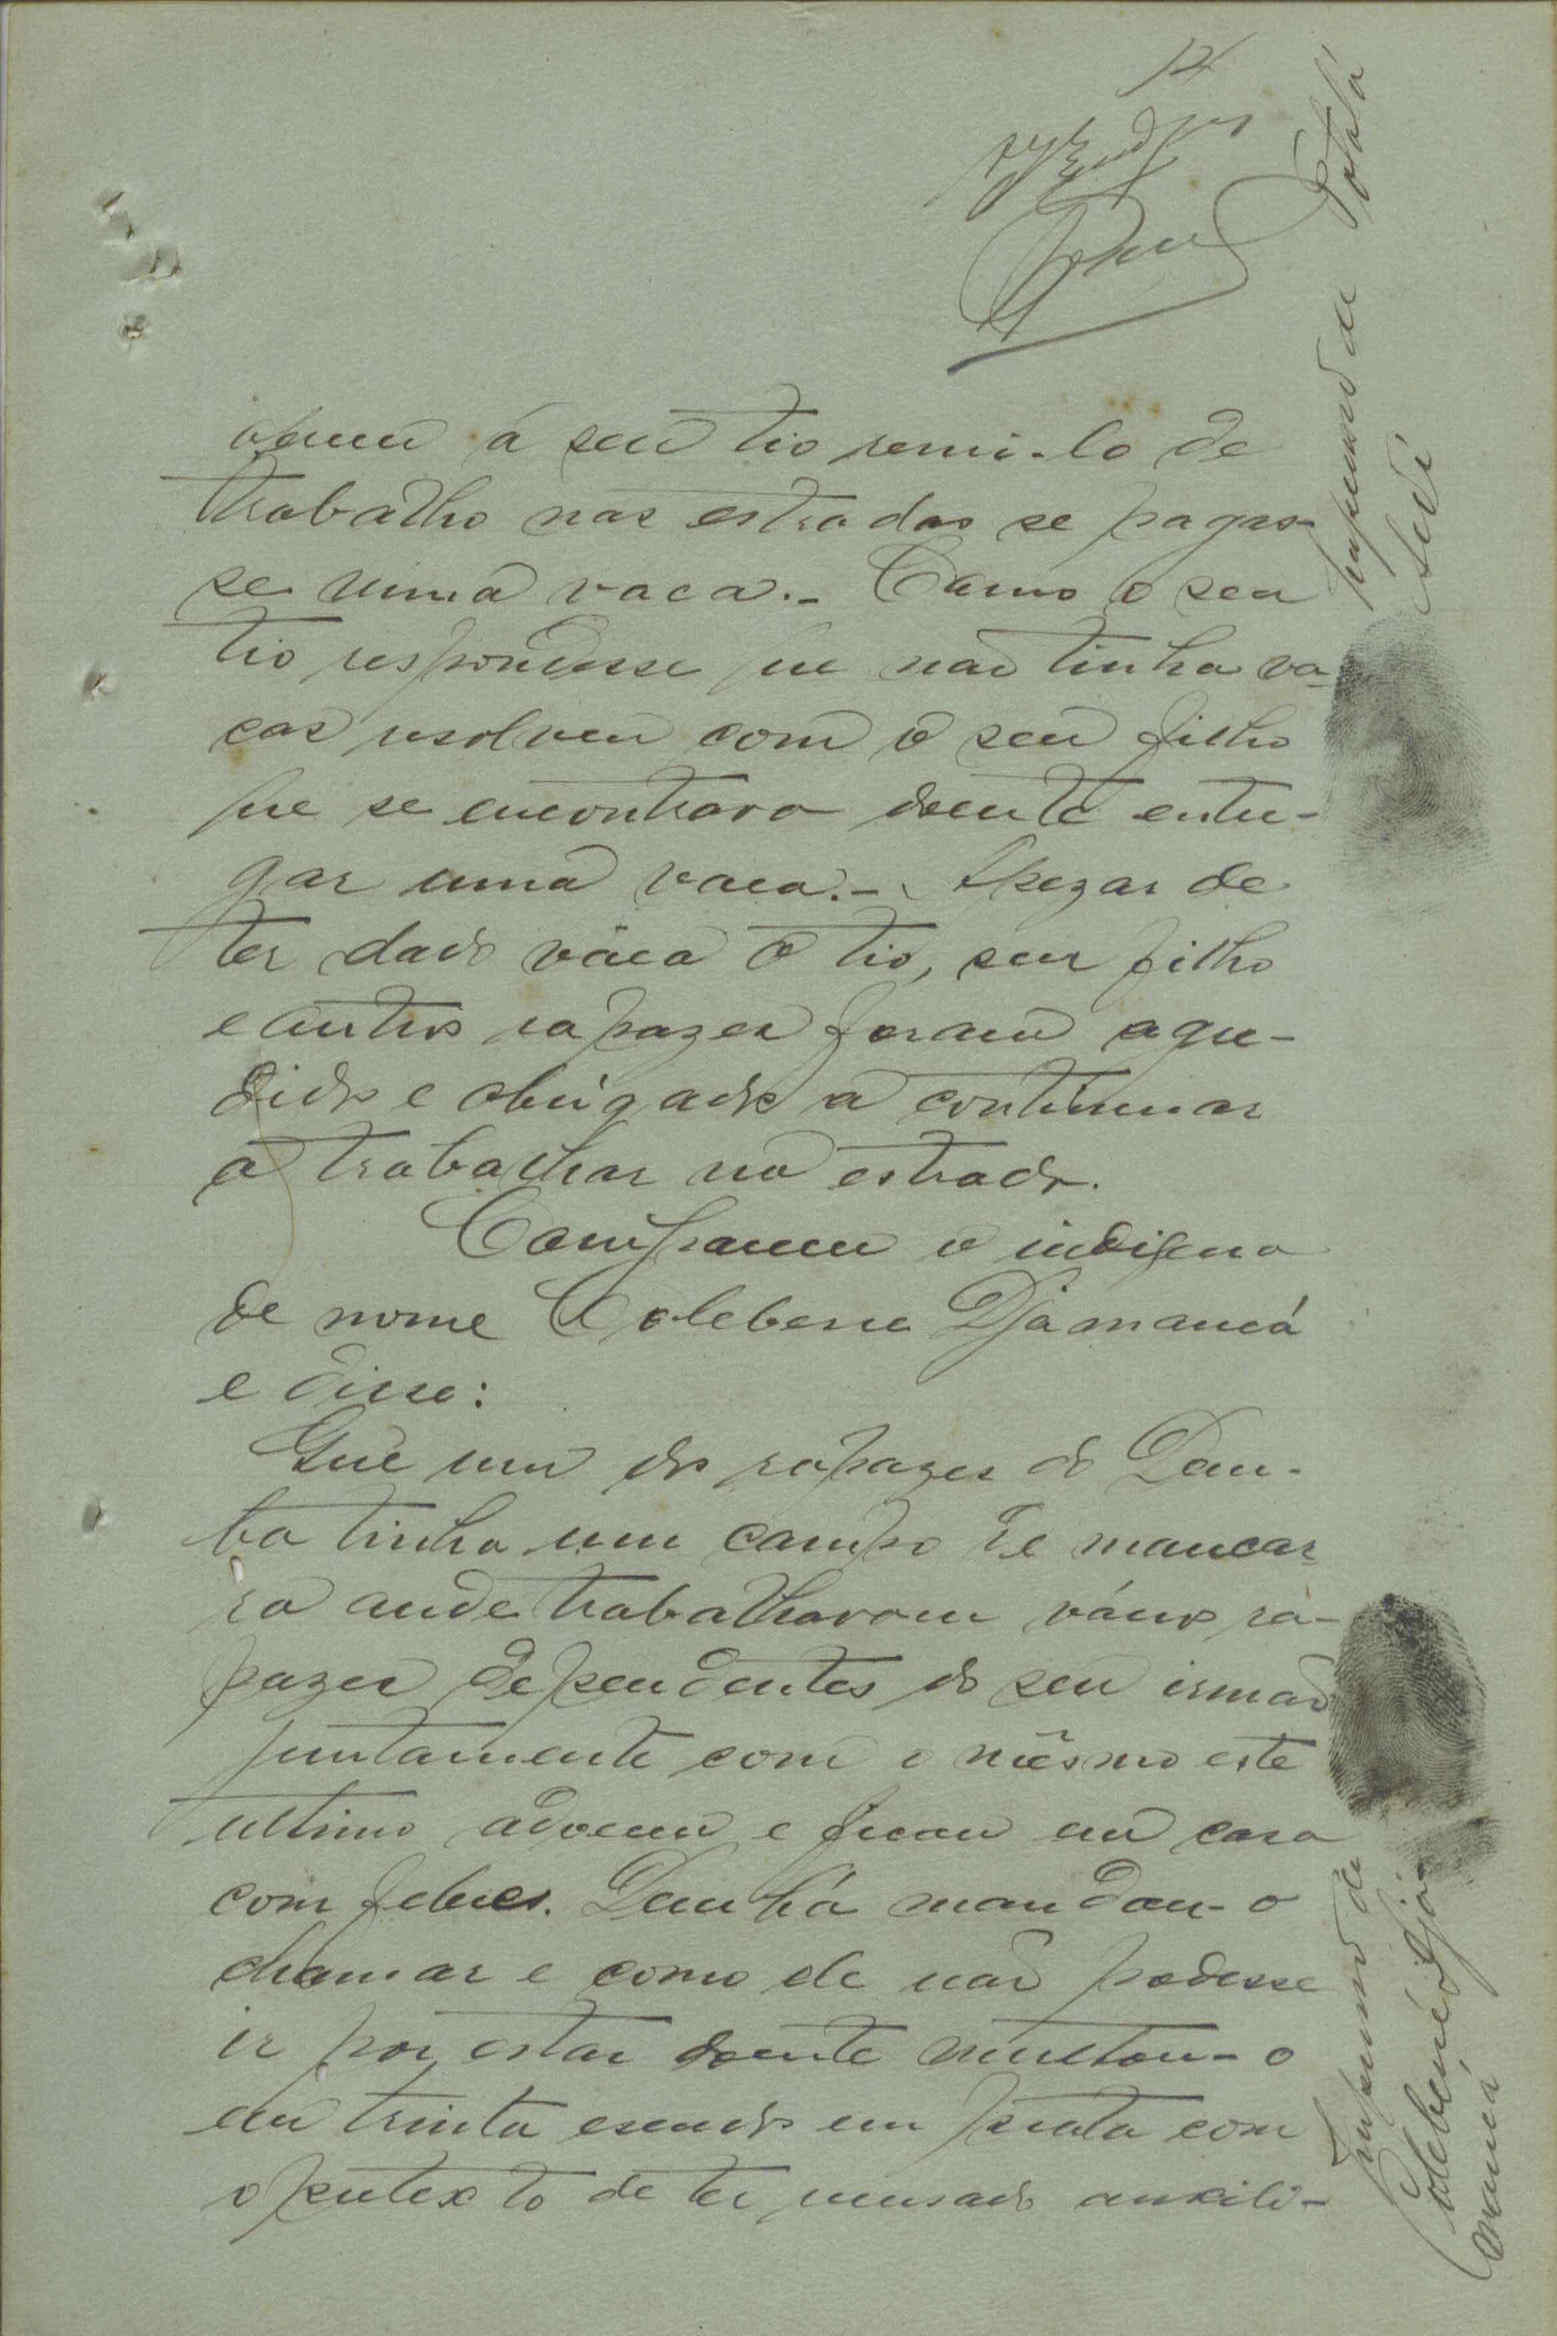 12
á seu tio remi-lo de
trabalho nas estradas se pagas-
se uma vaca.- Como o seu
tio respondesse que não tinha va-
cas resolveu com o seu filho
que se encontrava doente entre-
gar uma vaca.- Apezar de
ter dado vaca o tio, seu filho
e outros rapazes foram agre-
didos e obrigados a continuar
a trabalhar na estrada.
Compareceu o indigena
de nome Colebene Djamancá
e disse:
Que um dos rapazes do Dem-
ba tinha um campo de mancar-
ra onde trabalharam vários ra-
pazes dependentes do seu irmão
juntamente com o mesmo este
ultimo adoeceu e ficou em casa
com febres. Demba mandou-o
chamar e como ele não podesse
ir por estar doente multou-o
em trinta escudos em prata com
o pretexto de ter recusado auxili-
Impressão de
Impressão de
Colebené Djá-
mancá